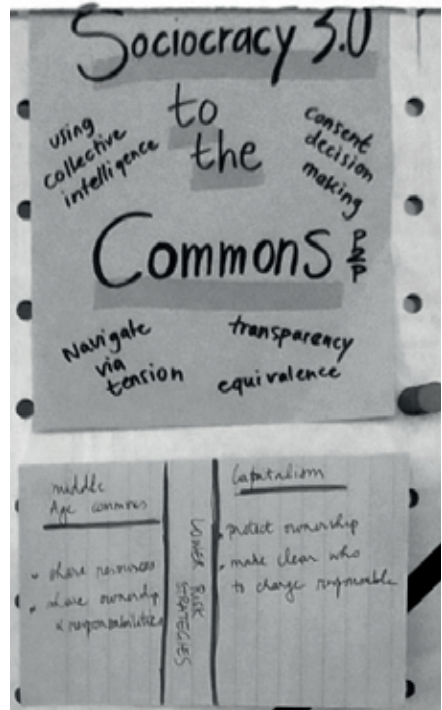 Sociocracy 3.0
to
the
Commons
P2P
using
collective
intelligence
consent
decision
making
Navigate
via
tension
transparency
equivalence
middle
Age commons
share resources
share ownership
& responsibilities
LOWER RISK
STRATEGIES
Capitalism
protect ownership
make clear who
to charge responsable